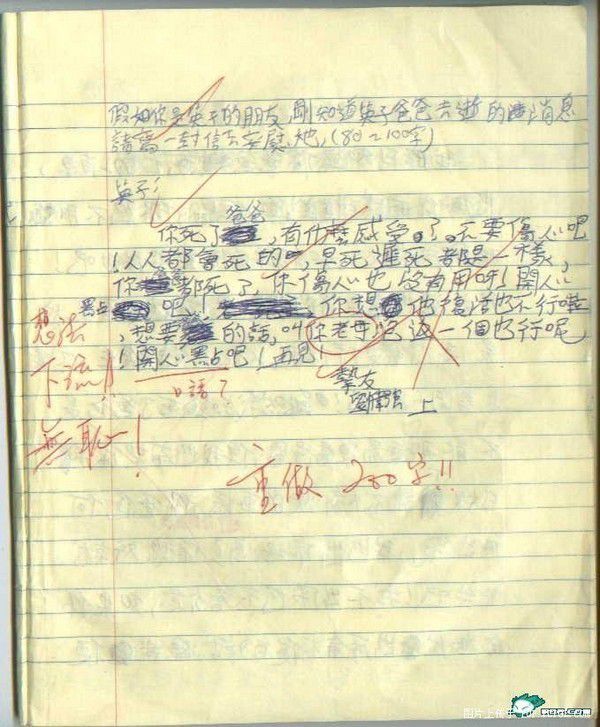 假如你是英子的朋友,剛知道英子爸爸去逝的消息
請寫一封信去安慰她,(80~100字)
英子:
爸爸
你死了,有什麼感受。了。不要傷心吧
!人人都會死的,早死遲死都是一樣,
你都死了,你傷心也沒有用呀!開心
黑占吧,你想他復活也不行啦
,想要的話,叫你老母呢返一個也行呢
!開心黑占吧!再見
摯友
上
想法
下流!!
無恥!
口語?
重做 200字!!